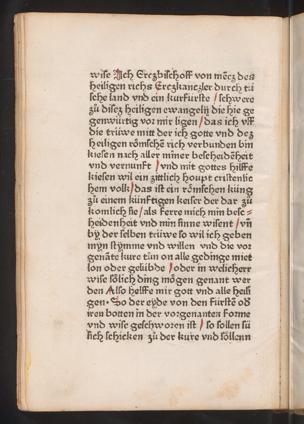 wise Ich Ertzbischoff von mēcz des
heiligen richs Erczkanczler durch tü
sche land vnd ein kurfürste / schwere
zů disez heiligen ewangelij die hie ge
genwürtig vor mir ligen / das ich vff
die trüwe mitt der ich gotte vnd dez
heiligen römschē rich verbunden bin
kiesen nach aller miner bescheidēheit
vnd vernunft / vnd mit gottes hilffe
kiesen wil ein zittlich houpt cristenlic
hem volk / das ist ein römschen küng
zů einem künftigen keiser der dar zů
komlich sie / als ferre mich min besc=
heidenheit vnd min sinne wisent / vn̄
by der selben trüwe so wil ich geben
myn stymme vnd willen vnd die vor
genāte kure tůn on alle gedinge miet
lon oder gelübde / oder in welicherr
wise sölich ding mögen genant wer
den Also helffe mir gott vnd alle heili
gen · So der eyde von den Fürstē od
iren botten in der vorgenanten Forme
vnd wise geschworen ist / so sollen sü
sich schicken zů der kure vnd söllenn